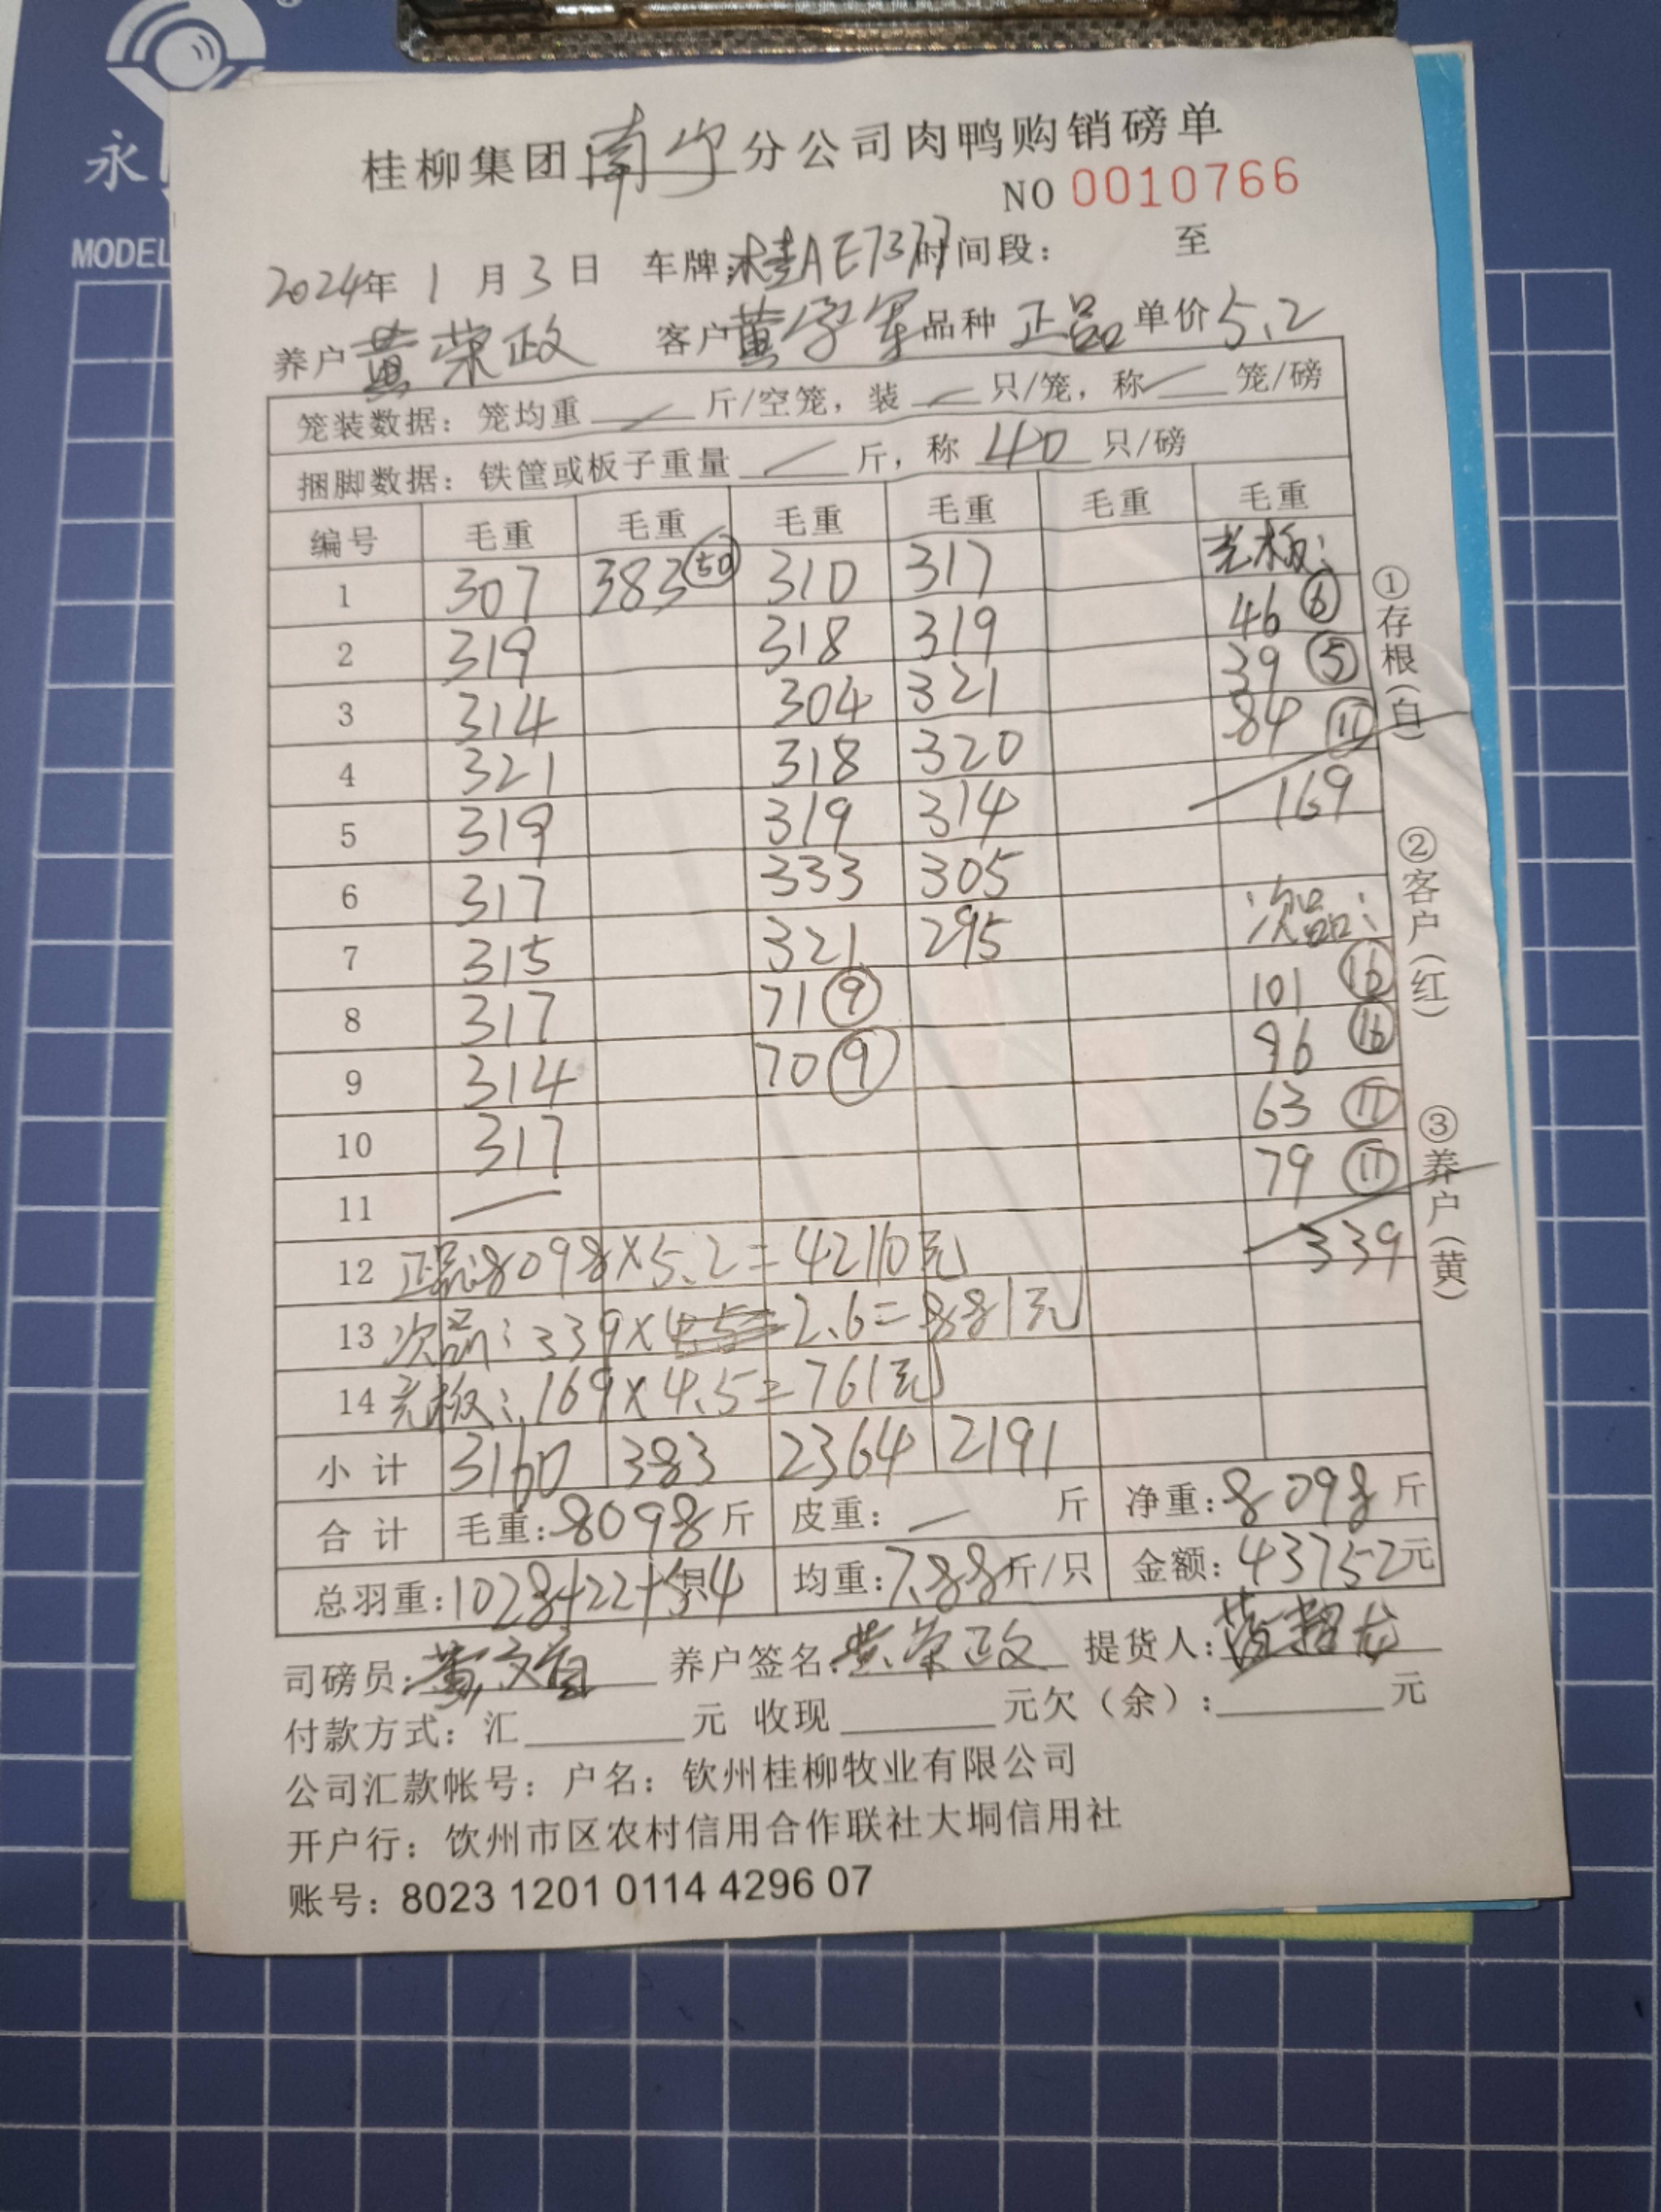 永
MODEL
桂柳集团南宁分公司肉鸭购销磅单
NO 0010766
2024年 1 月 3 日 车牌:桂AE7377 时间段: 至
养户 黄荣政 客户 黄学军 品种 正品 单价 5.2
笼装数据: 笼均重 / 斤/空笼, 装 / 只/笼, 称 / 笼/磅
捆脚数据: 铁筐或板子重量 / 斤, 称 40 只/磅
编号 毛重 毛重 毛重 毛重 毛重 毛重
光板:
1 307 383 50 310 317
46 6
2 319 318 319
39 5
3 314 304 321
84 11
4 321 318 320
169
5 319 319 314
6 317 333 305
次品:
7 315 321 295
101 16
8 317 71 9
96 16
9 314 70 9
63 11
10 317
79 11
11 —
339
12 正品:8098×5.2=42110元
13 次品:339×4.5=2.6=881元
14 光板:169×4.5=761元
小计 3160 383 2364 2191
合计 毛重:8098斤 皮重: — 斤 净重:8098斤
总羽重:1028+22+54只 均重:7.88斤/只 金额:43752元
司磅员: 养户签名:黄荣政 提货人:
付款方式: 汇 元 收现 元欠(余): 元
公司汇款帐号: 户名: 钦州桂柳牧业有限公司
开户行: 饮州市区农村信用合作联社大垌信用社
账号: 8023 1201 0114 4296 07
①存根(白)
②客户(红)
③养户(黄)